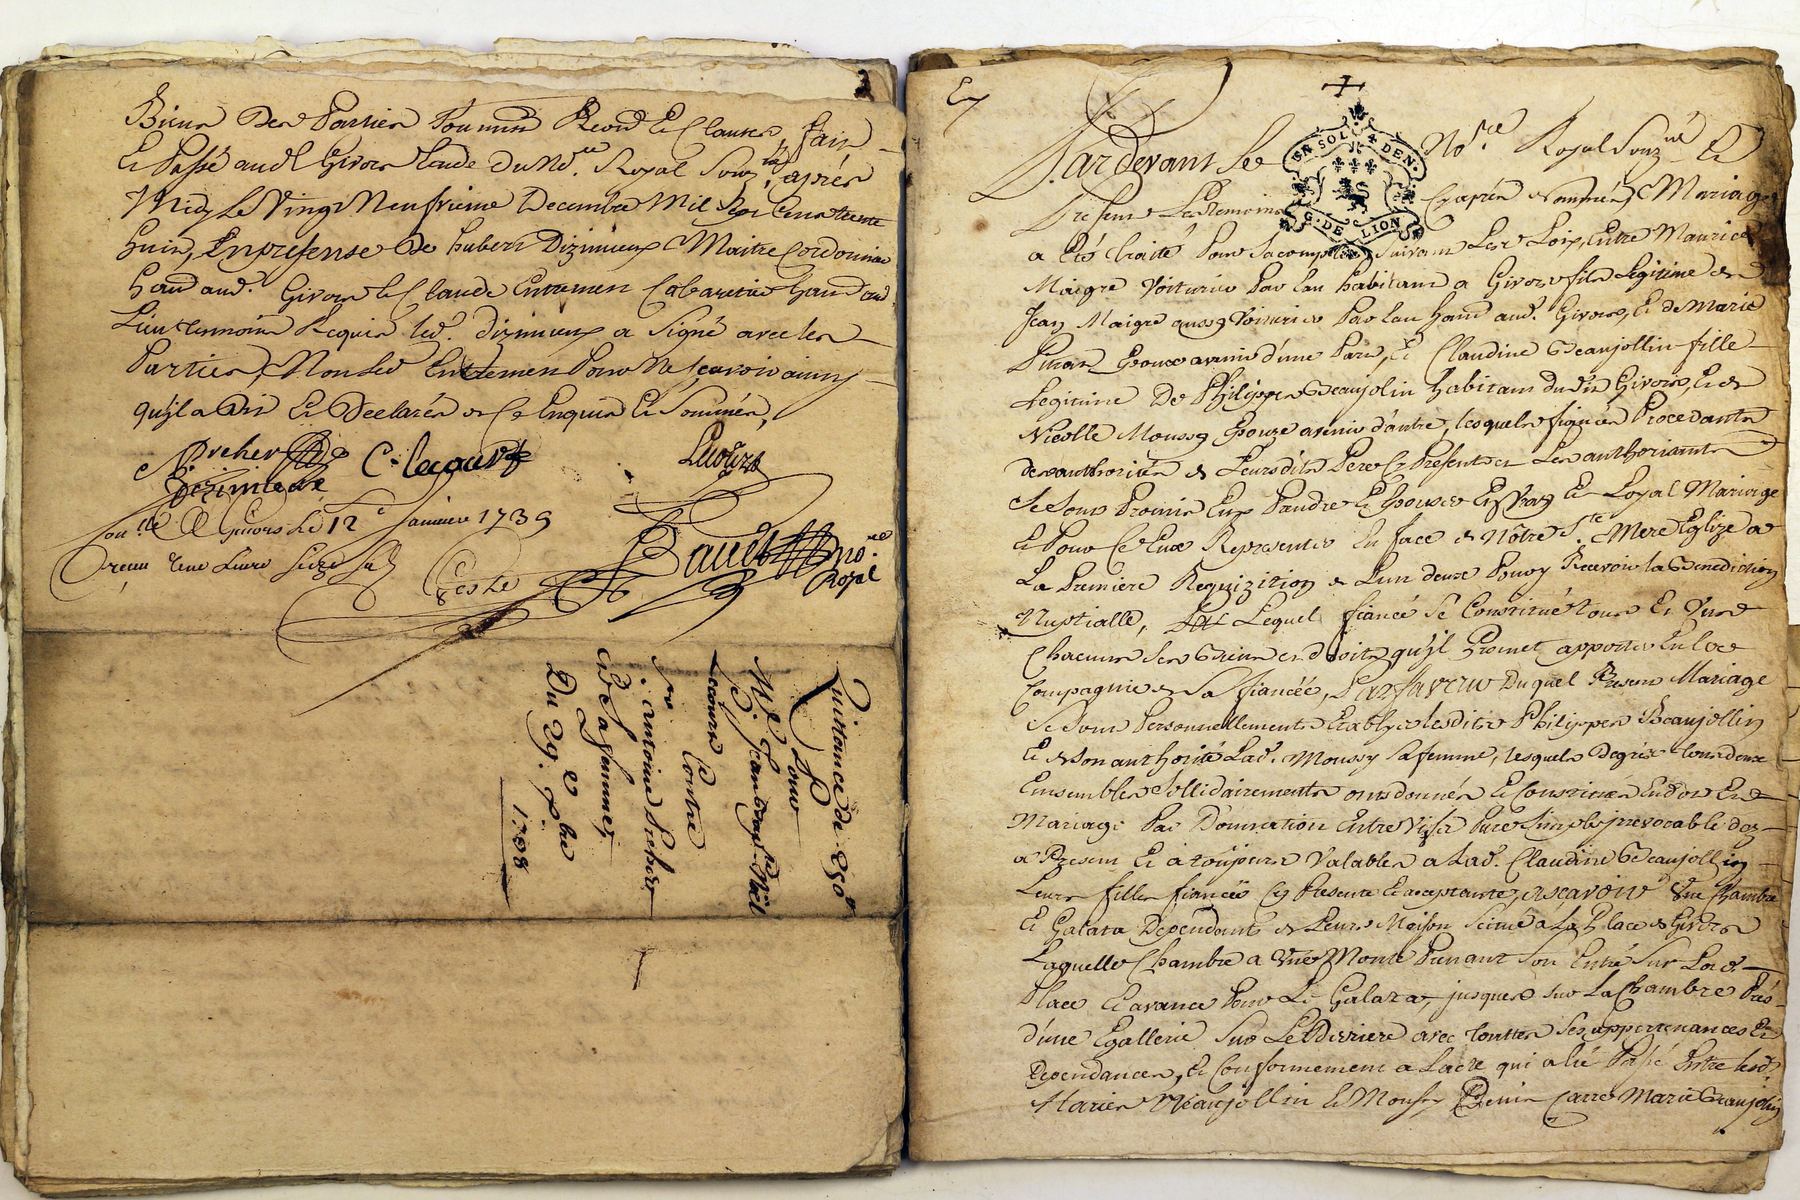 Biens des Parties Soumis Renon et Clauses, fait
Et Passé aud. Givors Etude du No.re Royal Souz.né après
Midy Le Vingt Neufvieme Decembre Mil Sept Cens trente
huit, En presense de hubert Dizimieux Maitre Cordonnier
habt. aud. Givors et Claude Entremen Cabaretier habt. aud.
Lieu temoins Requis led. Dizimieux a Signé avec les
Parties, Non led. Entremen Pour Ne Scavoir ainsy
qu'il a dit Et Declaré de Ce Enquis Et Sommés,
Preher C. lecourt Lecourt
Dizimieux
Con.lé A Givors Le 12e Janvier 1739
receu une Livre Seize Sols
Coste
Baudt no.re
Royal
Quittance de 250
Pour
Sr. Jean
Lecourt Contre
Sr. antoine Preher
et de Sa femme
Du 29e Xbre
1738
GN. SOL DEN.
G. DE LION
Pardevant Le No.re Royal Souz.né Et
Presens Les temoins Cy après Nommés, Mariage
a Eté traité Pour S'acomplir Suivant Les Loix, Entre Maurice
Maigre Voiturier Par Eau habitant a Givors fils Legitime de
Jean Maigre aussy Voiturier Par Eau habt. aud. Givors, Et de Marie
Pitiot Epoux avenir d'une Part, Et Claudine Beaujollin fille
Legitime De Philippe Beaujolin habitant dudit Givors, Et de
Nicolle Moussy Epouze avenir d'autre, lesquels fiancés Procedants
de authorités de Leursdits Peres Cy Presents et Les authorisants
Se Sont Promis Eux Prendre Et Epouser En Vray Et Loyal Mariage
Et Pour Ce Eux Representer En face de Nôtre Ste. Mere Eglize a
La Premiere Requizition de L'un d'eux Pour y Recevoir la Benediction
Nuptialle, Lequel fiancé Se Constitué tous Et Uns
Chacuns Ses Biens et droits qu'il Promet apporter En la
Compagnie de Sa fiancée, En faveur Duquel Present Mariage
Se Sont Personnellement Etablys lesdits Philippe Beaujollin
Et de Son authorité Lad. Moussy Sa femme, lesquels De gré tous deux
Ensembles Sollidairement ont donnés Et Constitués En dot En
Mariage Par Donnation Entre Vifs Pure Simple irrevocable dez
a Present Et à toujours Valable a Lad. Claudine Beaujollin
Leur fille fiancée Cy Presente Et acceptante, ascavoir Une Chambre
Et Galata Dependants de Leur Maison Scitué a La Place de Givors
Laquelle Chambre a Une Monte Prenant Son Entré Sur Lad.
Place Et avance Pour Le Galata, jusques Sur La Chambre Près
d'une Egallerie Sur Le Derriere avec touttes Ses appertenances Et
Dependances, Et Conformement a L'acte qui a été Passé Entre lesd.
Mariés Beaujollin Et Moussy Denis Carre Marie Beaujolin